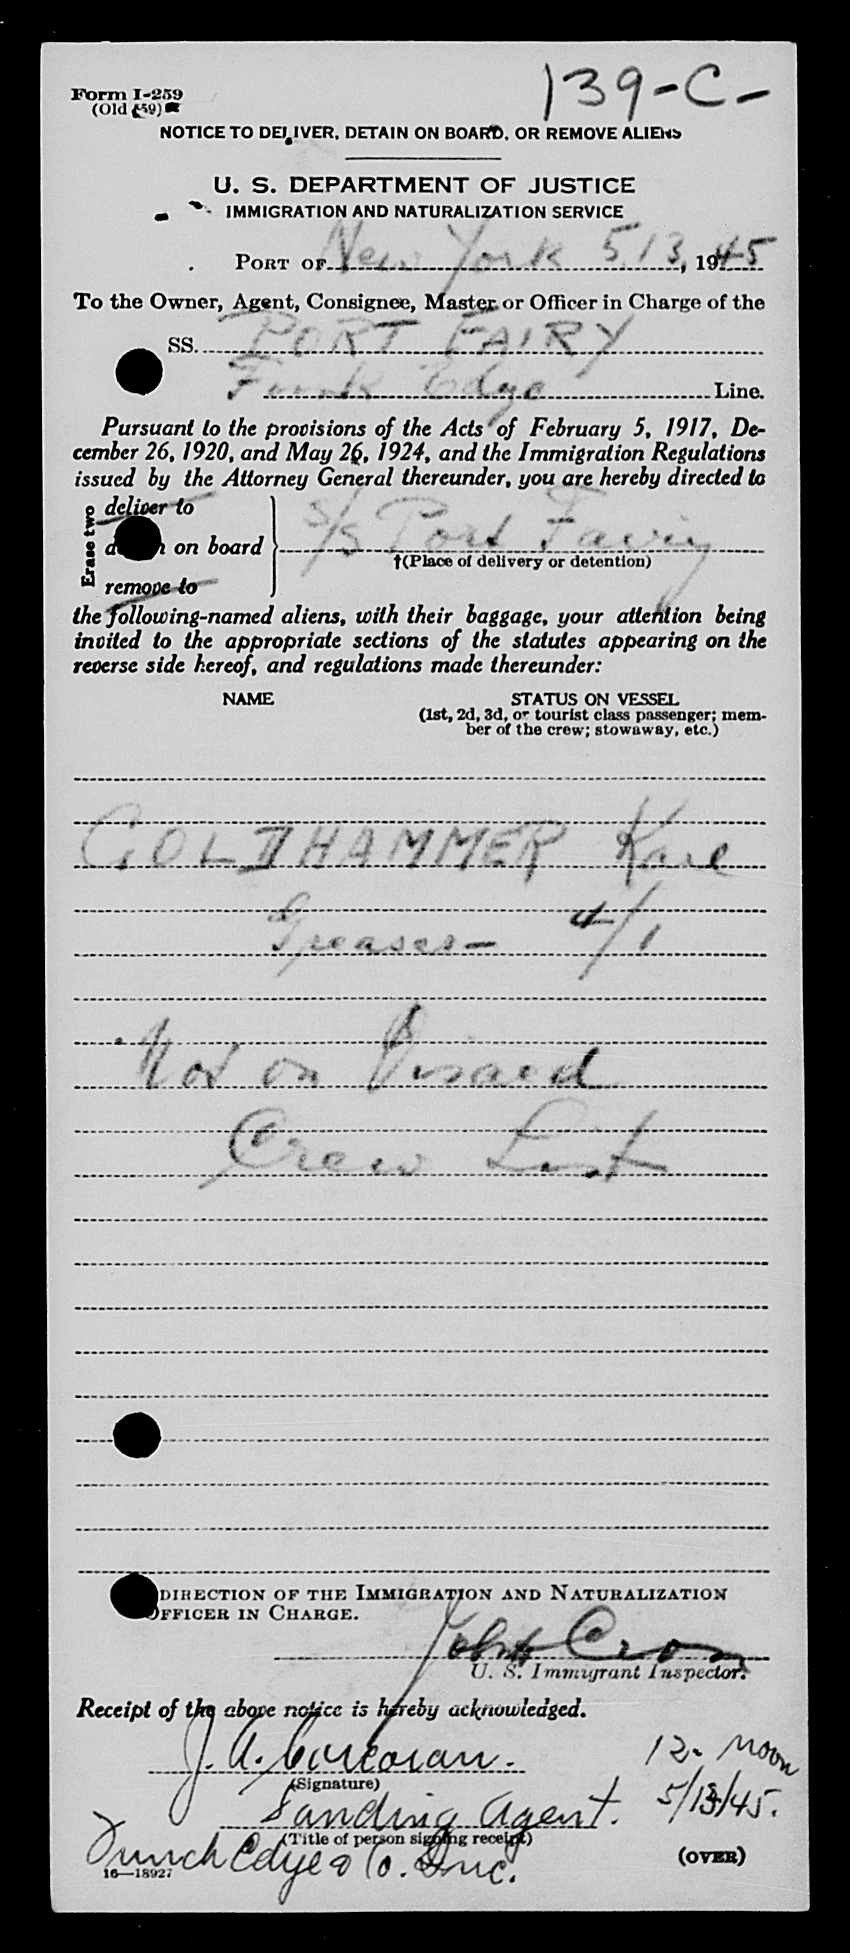 139-C-
Form I-259
(Old 659)
NOTICE TO DELIVER, DETAIN ON BOARD, OR REMOVE ALIENS
U. S. DEPARTMENT OF JUSTICE
IMMIGRATION AND NATURALIZATION SERVICE
PORT OF New York 5/13, 1945
To the Owner, Agent, Consignee, Master or Officer in Charge of the
SS. PORT FAIRY
Funk Edye Line.
Pursuant to the provisions of the Acts of February 5, 1917, De-
cember 26, 1920, and May 26, 1924, and the Immigration Regulations
issued by the Attorney General thereunder, you are hereby directed to
Erase two
deliver to
on board
S/S Port Fairy
†(Place of delivery or detention)
remove to
the following-named aliens, with their baggage, your attention being
invited to the appropriate sections of the statutes appearing on the
reverse side hereof, and regulations made thereunder:
NAME STATUS ON VESSEL
(1st, 2d, 3d, or tourist class passenger; mem-
ber of the crew; stowaway, etc.)
GOLDHAMMER Karl
Greaser- 4/1
Not on Visaed
Crew List
DIRECTION OF THE IMMIGRATION AND NATURALIZATION
OFFICER IN CHARGE.
John Cron
U. S. Immigrant Inspector.
Receipt of the above notice is hereby acknowledged.
J. A. Corcoran. 12. Noon
(Signature)
Landing Agent. 5/13/45.
(Title of person signing receipt)
Funch Edye & Co. Inc.
16—18927
(OVER)